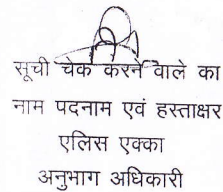 सूची चेक करने वाले का
नाम पदनाम एवं हस्ताक्षर
एलिस एक्का
अनुभाग अधिकारी